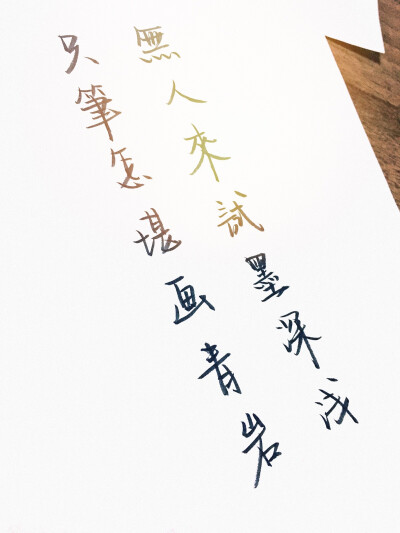 無人來試墨深浅
只筆怎堪画青岩